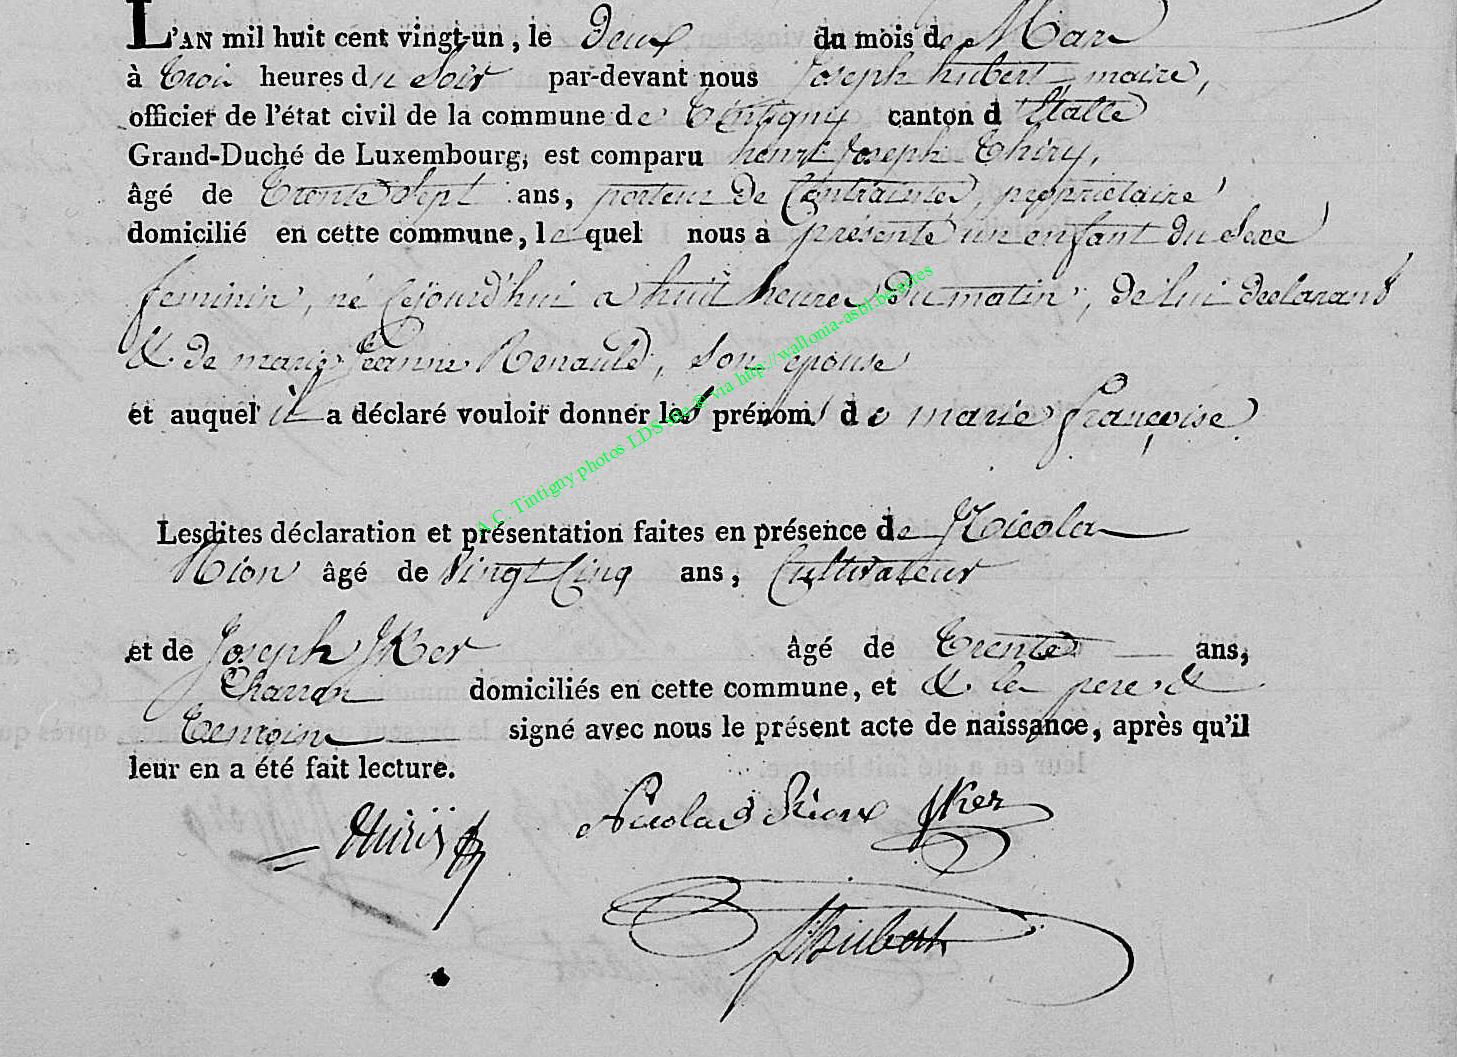 L'AN mil huit cent vingt-un, le Deux du mois de Mars
à trois heures du Soir par-devant nous Joseph hubert maire,
officier de l'état civil de la commune de Tintigny canton d'Etalle
Grand-Duché de Luxembourg, est comparu henri Joseph Thiry,
âgé de trente Sept ans, porteur de Contraintes, propriétaire
domicilié en cette commune, lequel nous a présenté un enfant du Sexe
feminin, né cejourd'hui a huit heures Du matin, de lui declarant
&. de marie Jeanne Renauld, Son epouse
et auquel il a déclaré vouloir donner les prénoms de marie françoise.
A.C. Tintigny photos LDS via http://wallonia-asbl.be/actes
Lesdites déclaration et présentation faites en présence de Nicolas
Rion âgé de Vingt Cinq ans, Cultivateur
et de Joseph Ker âgé de trente ans,
Charron domiciliés en cette commune, et &. le pere &
temoins signé avec nous le présent acte de naissance, après qu'il
leur en a été fait lecture.
thiry Nicolas Rion JKer
JHubert